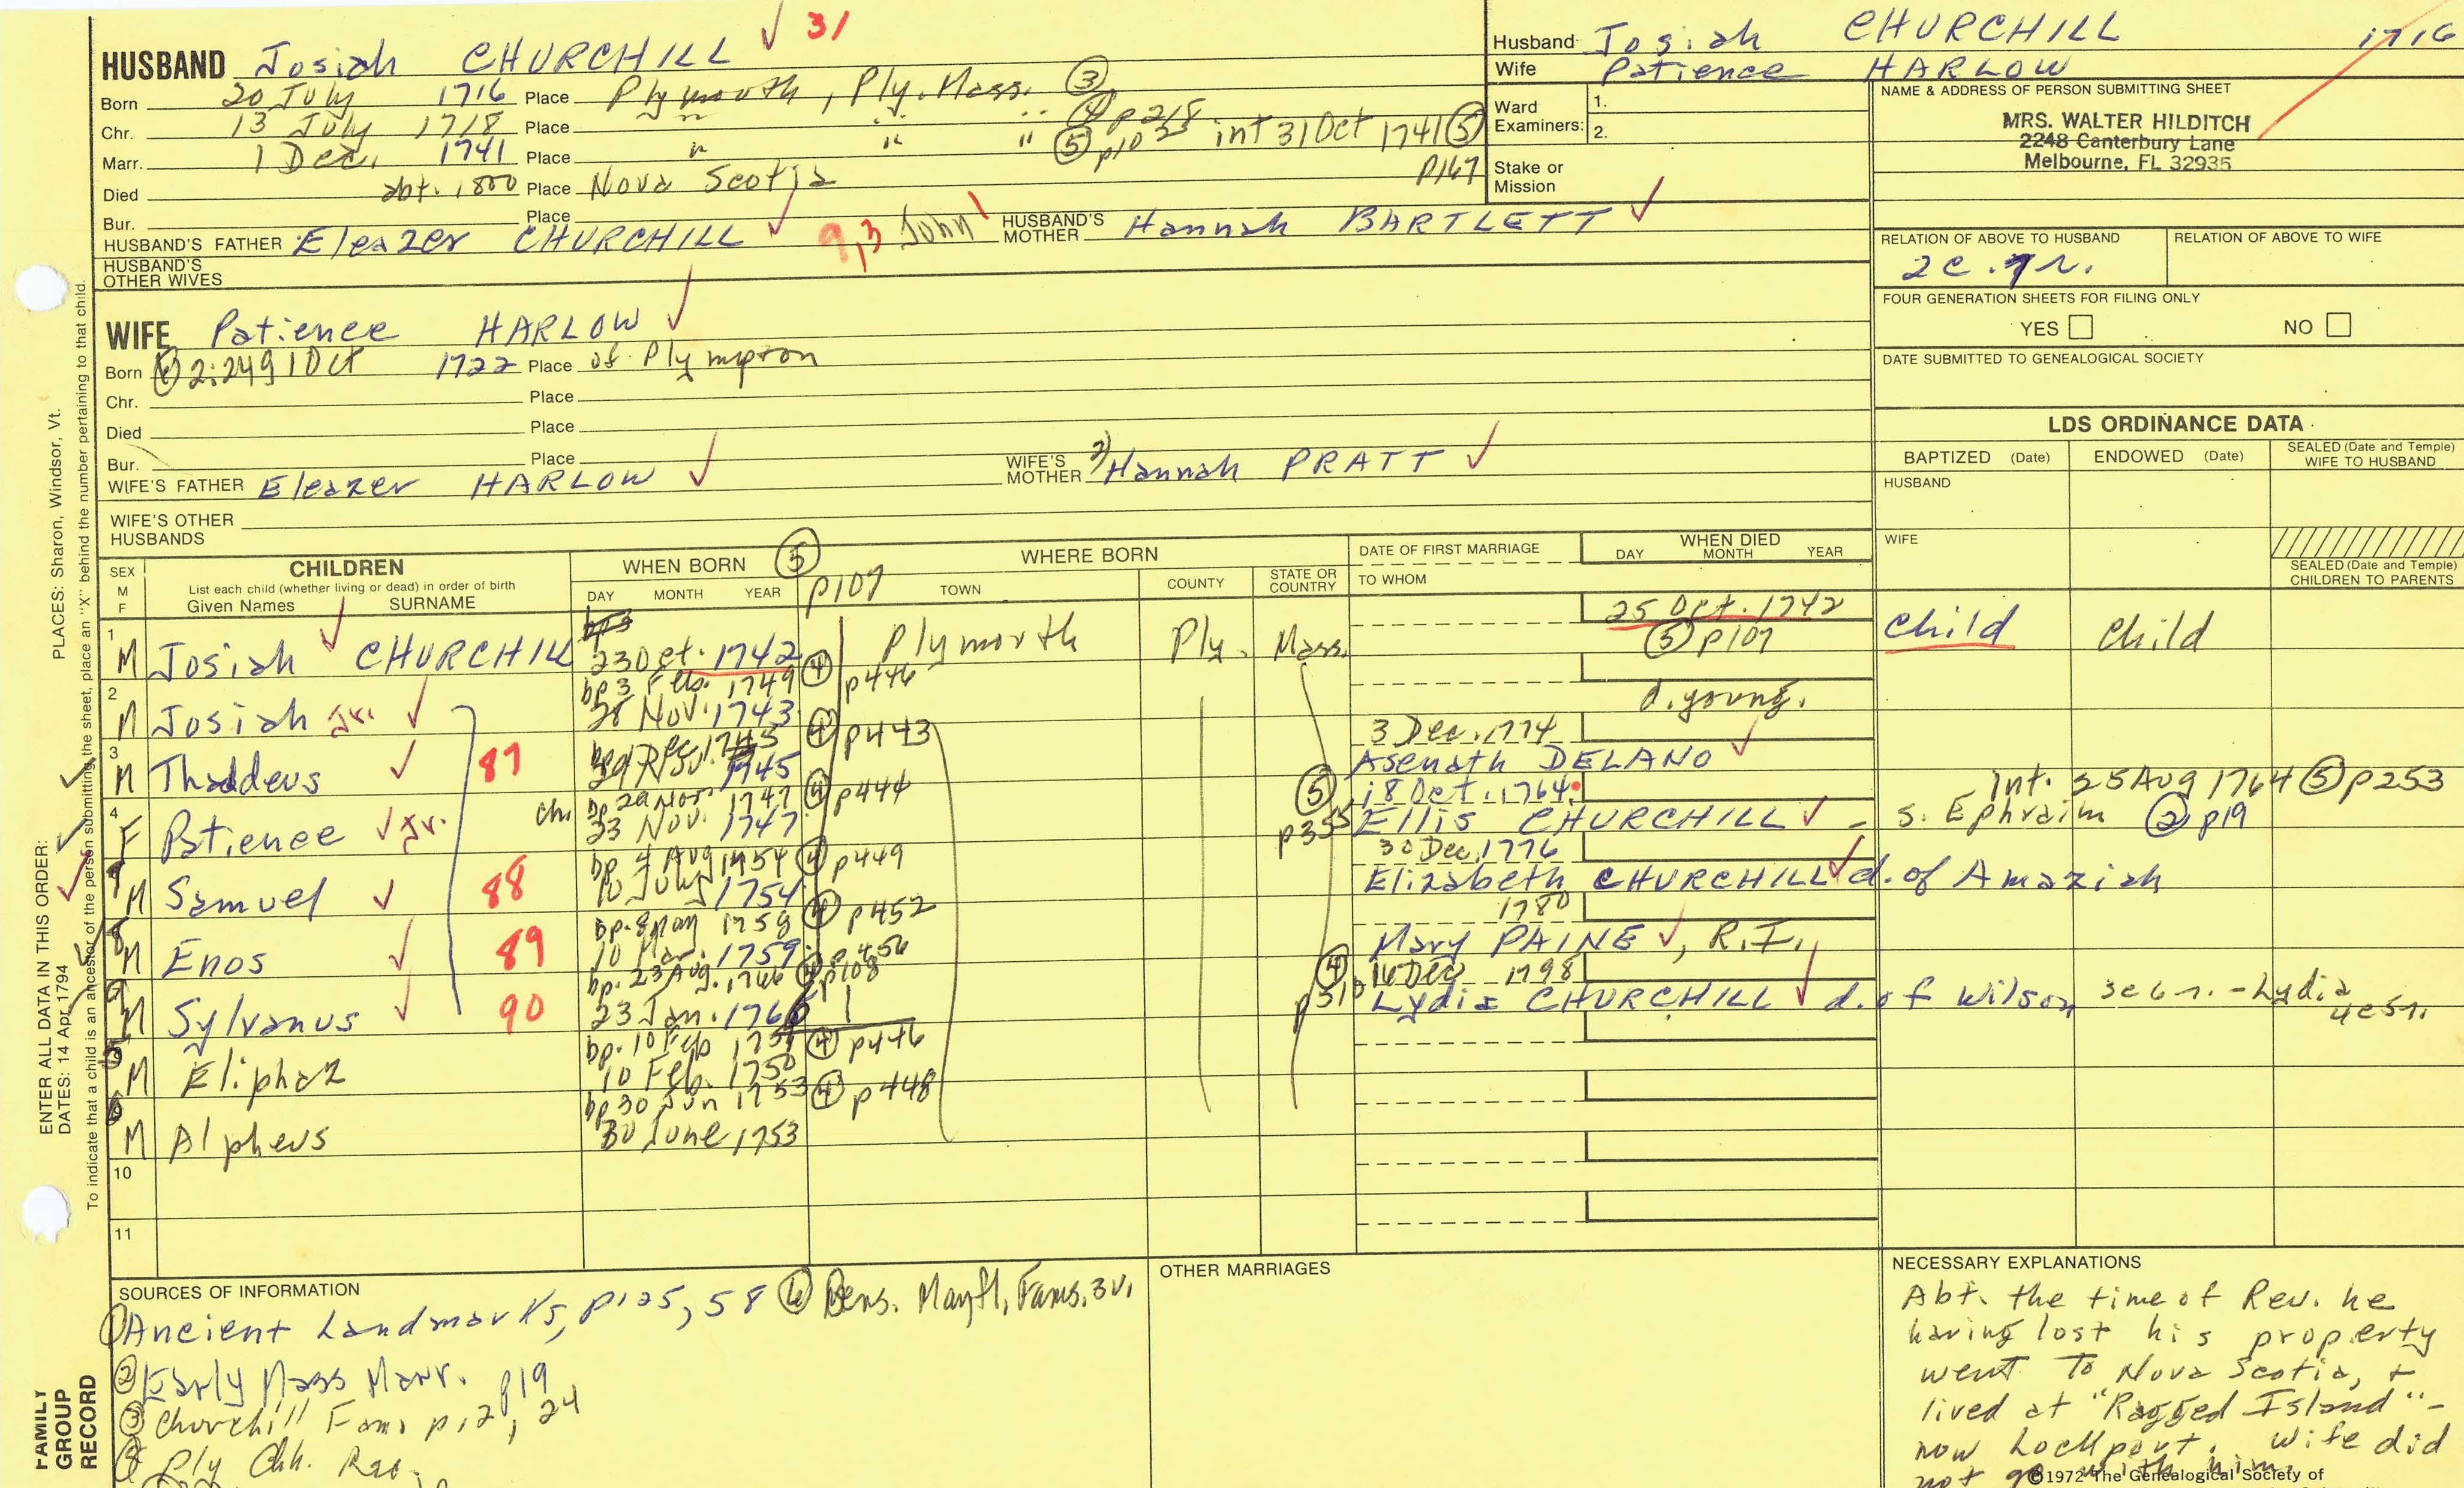 HUSBAND Josiah CHURCHILL ✓ 31
Born 20 July 1716 Place Plymouth, Ply. Mass. ③
Chr. 13 July 1718 Place " " " ④ p218
Marr. 1 Dec. 1741 Place " " " ⑤ int 31 Oct 1741 ⑤ p167
Died abt. 1800 Place Nova Scotia
Bur. Place
HUSBAND'S FATHER Eleazer CHURCHILL ✓ 9,3 John HUSBAND'S MOTHER Hannah BARTLETT ✓
HUSBAND'S OTHER WIVES
Husband Josiah CHURCHILL 1716
Wife Patience HARLOW
Ward Examiners: 1.
2.
Stake or Mission
NAME & ADDRESS OF PERSON SUBMITTING SHEET
MRS. WALTER HILDITCH
2248 Canterbury Lane
Melbourne, FL 32935
RELATION OF ABOVE TO HUSBAND RELATION OF ABOVE TO WIFE
FOUR GENERATION SHEETS FOR FILING ONLY
YES NO
DATE SUBMITTED TO GENEALOGICAL SOCIETY
WIFE Patience HARLOW ✓
Born ⑥ 2:249 1 Oct 1722 Place of Plympton
Chr. Place
Died Place
Bur. Place
WIFE'S FATHER Eleazer HARLOW ✓ WIFE'S MOTHER 2) Hannah PRATT ✓
WIFE'S OTHER HUSBANDS
LDS ORDINANCE DATA
BAPTIZED (Date) ENDOWED (Date) SEALED (Date and Temple) WIFE TO HUSBAND
HUSBAND
WIFE
SEALED (Date and Temple) CHILDREN TO PARENTS
SEX M F
CHILDREN
List each child (whether living or dead) in order of birth
Given Names SURNAME
WHEN BORN ⑤ p107
DAY MONTH YEAR
WHERE BORN
TOWN COUNTY STATE OR COUNTRY
DATE OF FIRST MARRIAGE
TO WHOM
WHEN DIED
DAY MONTH YEAR
25 Oct. 1742
1 M Josiah CHURCHILL 23 Oct. 1742 Plymouth Ply. Mass. ⑤ p107 Child Child
bp 3 Feb. 1749 ④ p446
2 M Josiah Jr. ✓ 28 Nov. 1743 d. young.
④ p443 3 Dec. 1774
3 M Thaddeus ✓ 87 1745 Asenath DELANO ✓
ch. bp 29 Nov. 1747 ④ p444 ⑤ p355 18 Oct. 1764 Int. 25 Aug 1764 ⑤ p253
4 F Patience ✓ Jr. 23 Nov. 1747 Ellis CHURCHILL ✓ - s. Ephraim ② p19
bp 4 Aug 1754 ④ p449 30 Dec. 1776
M Samuel ✓ 88 10 July 1754 Elizabeth CHURCHILL ✓ d. of Amaziah
bp. 8 May 1759 ④ p452 1780
M Enos ✓ 89 10 Mar. 1759 Mary PAINE ✓, R.I.
bp. 23 Aug. 1766 p456 p108 ④ 16 Dec 1798
M Sylvanus ✓ 90 23 Jan. 1766 Lydia CHURCHILL ✓ d. of Wilson
bp. 10 Feb ④ p446
M Eliphaz 10 Feb. 1750
bp 30 Jun 1753 ④ p448
M Alpheus 30 June 1753
10
11
SOURCES OF INFORMATION
① Ancient Landmarks, p125, 58 ⑥ Bens. Mayfl. Fams. 3v.
② Early Mass Marr. p19
③ Churchill Fam. p12, 24
④ Ply Chh. Rec.
OTHER MARRIAGES
NECESSARY EXPLANATIONS
Abt. the time of Rev. he
having lost his property
went to Nova Scotia, +
lived at "Ragged Island" -
now Lockport. Wife did
not go with him.
©1972 The Genealogical Society of
ENTER ALL DATA IN THIS ORDER:
DATES: 14 Apr 1794
PLACES: Sharon, Windsor, Vt.
To indicate that a child is an ancestor of the person submitting the sheet, place an "X" behind the number pertaining to that child.
FAMILY
GROUP
RECORD